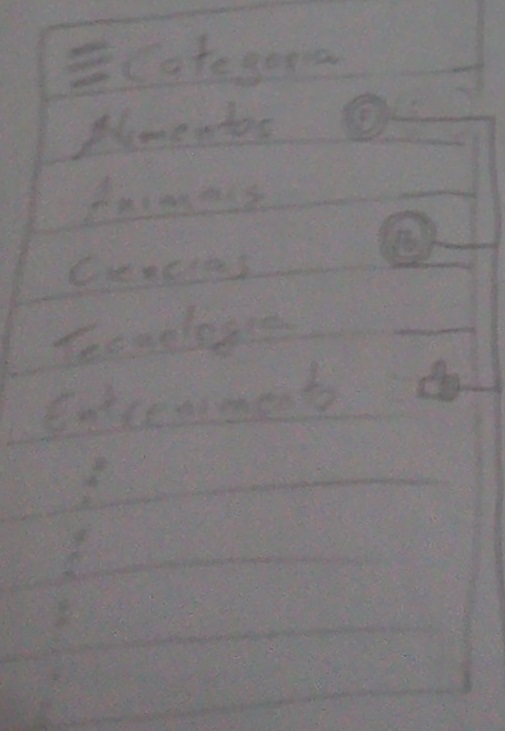 Categoria
Alimentos
Animais
Ciencias
Tecnologia
Entreniment